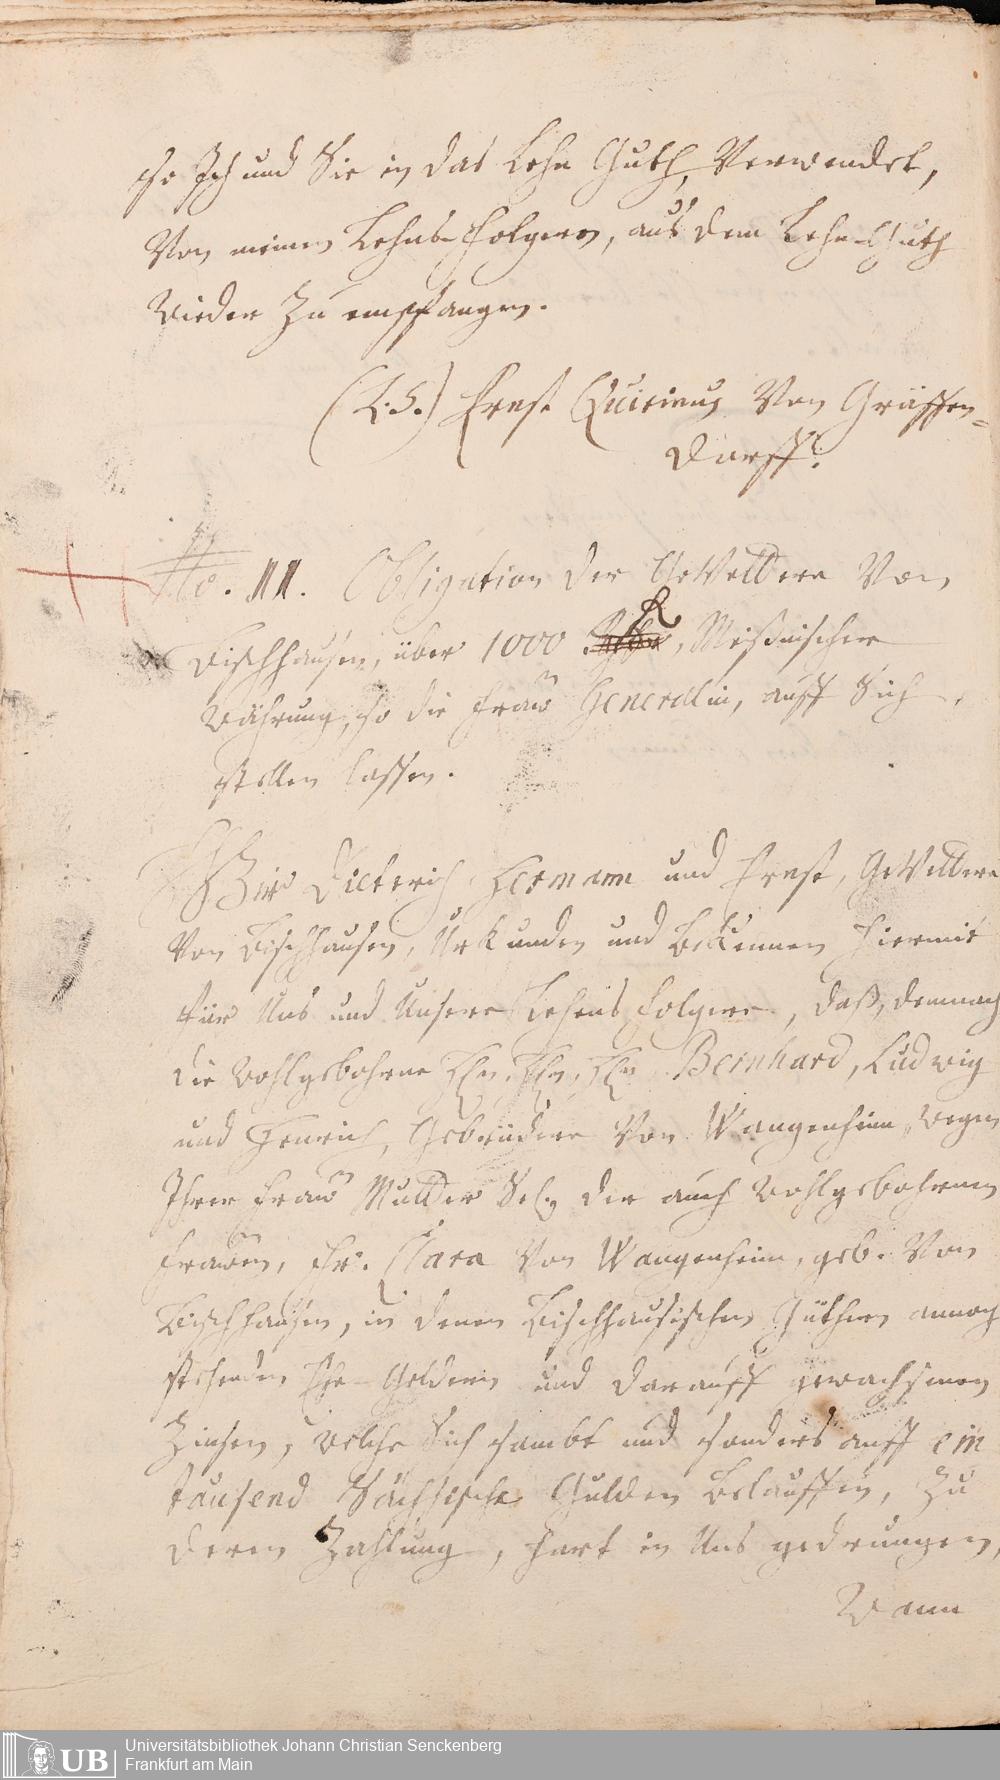 so Ich und Sie in das Lehn Guth, Verwendet,
Von meinen Lehns-Folgern, aus dem Lehn-Guth
wieder Zu empfangen.
(L.S.) Ernst Quirinus Von Gräffen=
dorff.
No. 11. Obligation der GeVettere Von
Bischhausen, über 1000 R, Meißnischer
Währung, so die Frau Generalin, auff Sich
stellen lassen.
Wir Dieterich Hermann und Ernst, GeVettere
Von Bischhausen, Uhrkunden und Bekennen hiermit
für Uns und Unsere Lehens Folgere, daß, demnach
die Wohlgebohrne HHn. HHn. HHn Bernhard, Ludwig
und Henrich, Gebrüdere Von Wangenheim, wegen
Ihrer Frau Mutter Sel. der auch Wohlgebohrnen
Frauen, Fr. Clara Von Wangenheim, geb. Von
Bischhausen, in denen Bischhausischen Güthern annoch
stehenden Ehe-Geldern und darauff gewachsenen
Zinsen, welche Sich sambt und sonders auff ein
tausend Sächsische Gulden Belauffen, Zu
deren Zahlung, hart in Uns gedrungen,
Wann
Universitätsbibliothek Johann Christian Senckenberg
Frankfurt am Main
UB